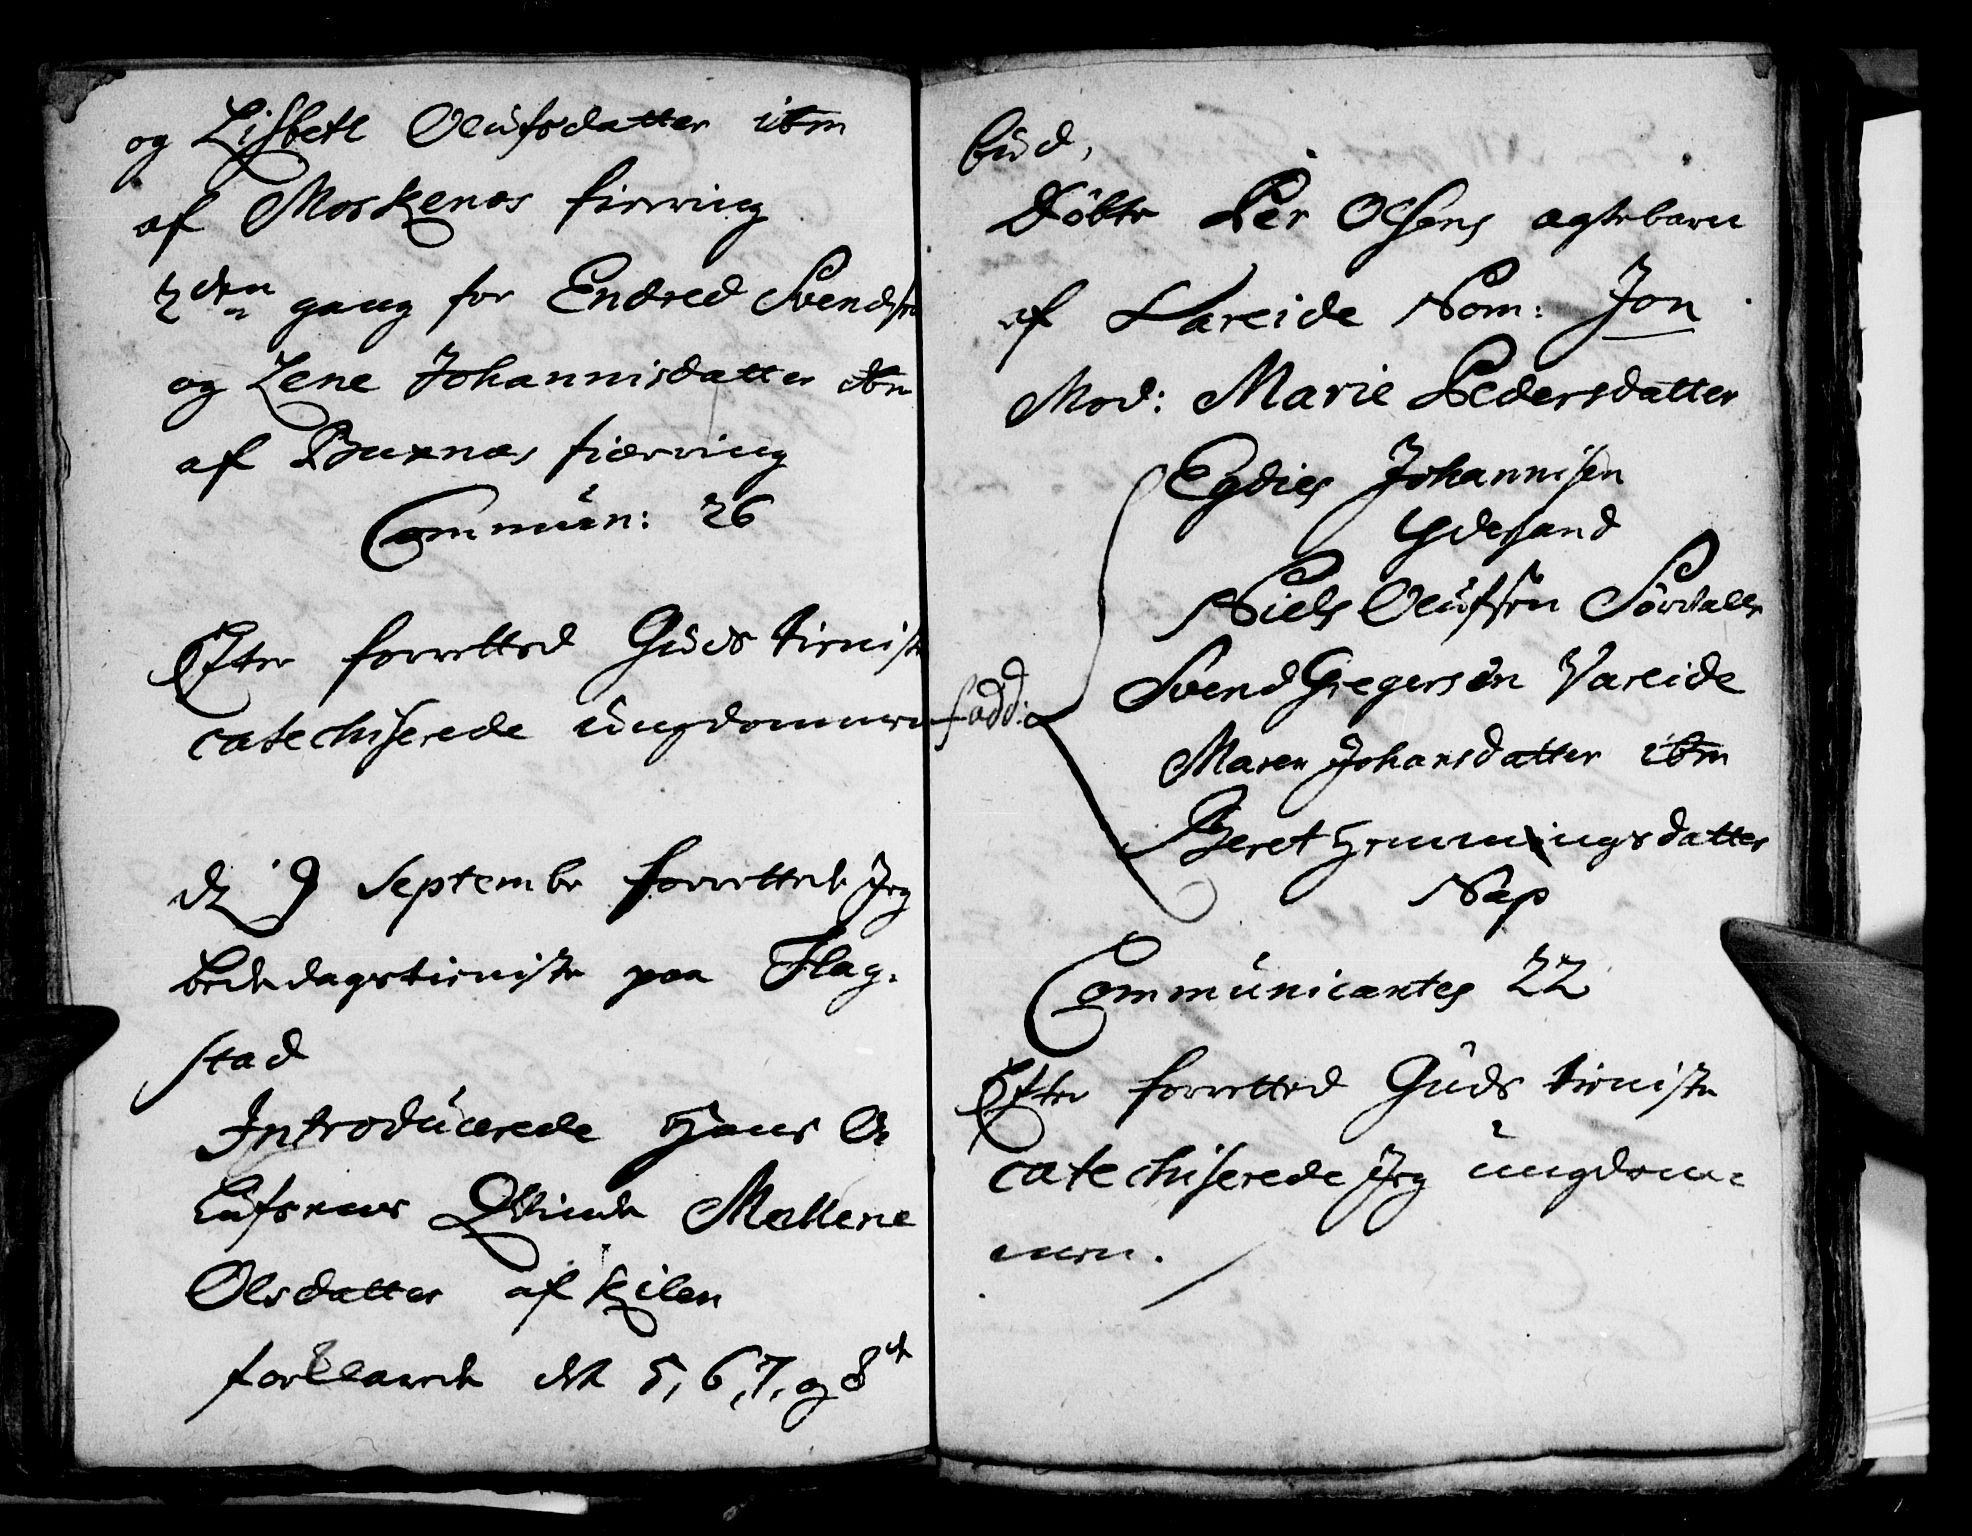 og Lisbeth Olufsdatter ibm
af Moskenæs fierring
2den gang for Endred Svends.
og Lene Johannisdatter ibm
af Buxnæs fierring
Commun: 26
Efter forretted Guds tieniste
catechiserede ungdommen
d 9 Septembr forrettede Jeg
bededagstieniste paa Flag-
stad
Introducerede Hans O-
lufsens Qvinde Mallene
Olsdatter af Kilen
forklarede det 5, 6, 7, og 8de
bud,
Døbte Per Olsens ægtebarn
af Vareide Nom: Jon
Mod: Marie Pedersdatter
Egdies Johannisen
Ydersand
Niels Olufsen Sørdalle
fadd: Svend Gregersen Vareide
Maren Johansdatter ibm
Beret Hemmingsdatter
Nap
Communicantes 22
Efter forretted Guds tieniste
catechiserede Jeg ungdom-
men.